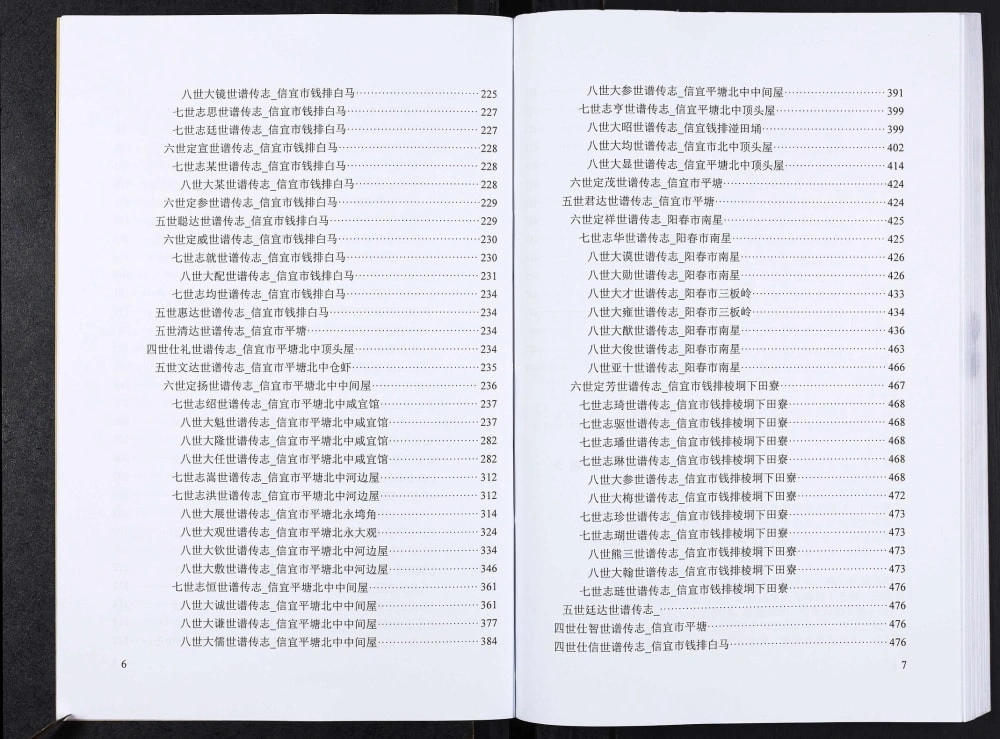 八世大镜世谱传志_信宜市钱排白马························225
七世志思世谱传志_信宜市钱排白马························227
七世志廷世谱传志_信宜市钱排白马························227
六世定宣世谱传志_信宜市钱排白马························228
七世志某世谱传志_信宜市钱排白马························228
八世大某世谱传志_信宜市钱排白马························228
六世定参世谱传志_信宜市钱排白马························229
五世聪达世谱传志_信宜市钱排白马························229
六世定威世谱传志_信宜市钱排白马························230
七世志就世谱传志_信宜市钱排白马························230
八世大配世谱传志_信宜市钱排白马························231
七世志均世谱传志_信宜市钱排白马························234
五世惠达世谱传志_信宜市钱排白马························234
五世清达世谱传志_信宜市平塘························234
四世仕礼世谱传志_信宜市平塘北中顶头屋························234
五世文达世谱传志_信宜市平塘北中仓虾························235
六世定扬世谱传志_信宜市平塘北中中间屋························236
七世志绍世谱传志_信宜市平塘北中咸宜馆························237
八世大魁世谱传志_信宜市平塘北中咸宜馆························237
八世大隆世谱传志_信宜市平塘北中咸宜馆························282
八世大任世谱传志_信宜市平塘北中咸宜馆························282
七世志嵩世谱传志_信宜市平塘北中河边屋························312
七世志洪世谱传志_信宜市平塘北中河边屋························312
八世大展世谱传志_信宜市平塘北永塆角························314
八世大观世谱传志_信宜市平塘北永大观························324
八世大钦世谱传志_信宜市平塘北中河边屋························334
八世大敷世谱传志_信宜市平塘北中河边屋························346
七世志恒世谱传志_信宜平塘北中中间屋························361
八世大诚世谱传志_信宜平塘北中中间屋························361
八世大谦世谱传志_信宜平塘北中中间屋························377
八世大儒世谱传志_信宜平塘北中中间屋························384
6
八世大参世谱传志_信宜平塘北中中间屋························391
七世志亨世谱传志_信宜平塘北中顶头屋························399
八世大昭世谱传志_信宜钱排湴田埇························399
八世大均世谱传志_信宜市北中顶头屋························402
八世大显世谱传志_信宜平塘北中顶头屋························414
六世定茂世谱传志_信宜市平塘························424
五世君达世谱传志_信宜市平塘························424
六世定祥世谱传志_阳春市南星························425
七世志华世谱传志_阳春市南星························425
八世大谟世谱传志_阳春市南星························426
八世大勋世谱传志_阳春市南星························426
八世大才世谱传志_阳春市三板岭························433
八世大雍世谱传志_阳春市三板岭························434
八世大猷世谱传志_阳春市南星························436
八世大俊世谱传志_阳春市南星························463
八世亚十世谱传志_阳春市南星························466
六世定芳世谱传志_信宜市钱排棱垌下田寮························467
七世志琦世谱传志_信宜市钱排棱垌下田寮························468
七世志驱世谱传志_信宜市钱排棱垌下田寮························468
七世志璠世谱传志_信宜市钱排棱垌下田寮························468
七世志琳世谱传志_信宜市钱排棱垌下田寮························468
八世大参世谱传志_信宜市钱排棱垌下田寮························468
八世大梅世谱传志_信宜市钱排棱垌下田寮························472
七世志珍世谱传志_信宜市钱排棱垌下田寮························473
七世志瑚世谱传志_信宜市钱排棱垌下田寮························473
八世熊三世谱传志_信宜市钱排棱垌下田寮························473
八世大翰世谱传志_信宜市钱排棱垌下田寮························473
七世志琏世谱传志_信宜市钱排棱垌下田寮························476
五世廷达世谱传志_························476
四世仕智世谱传志_信宜市平塘························476
四世仕信世谱传志_信宜市钱排白马························476
7